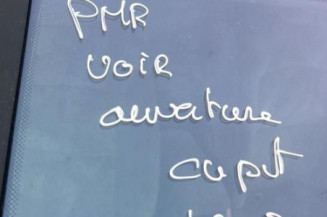 PMR
voir
ouverture
capot